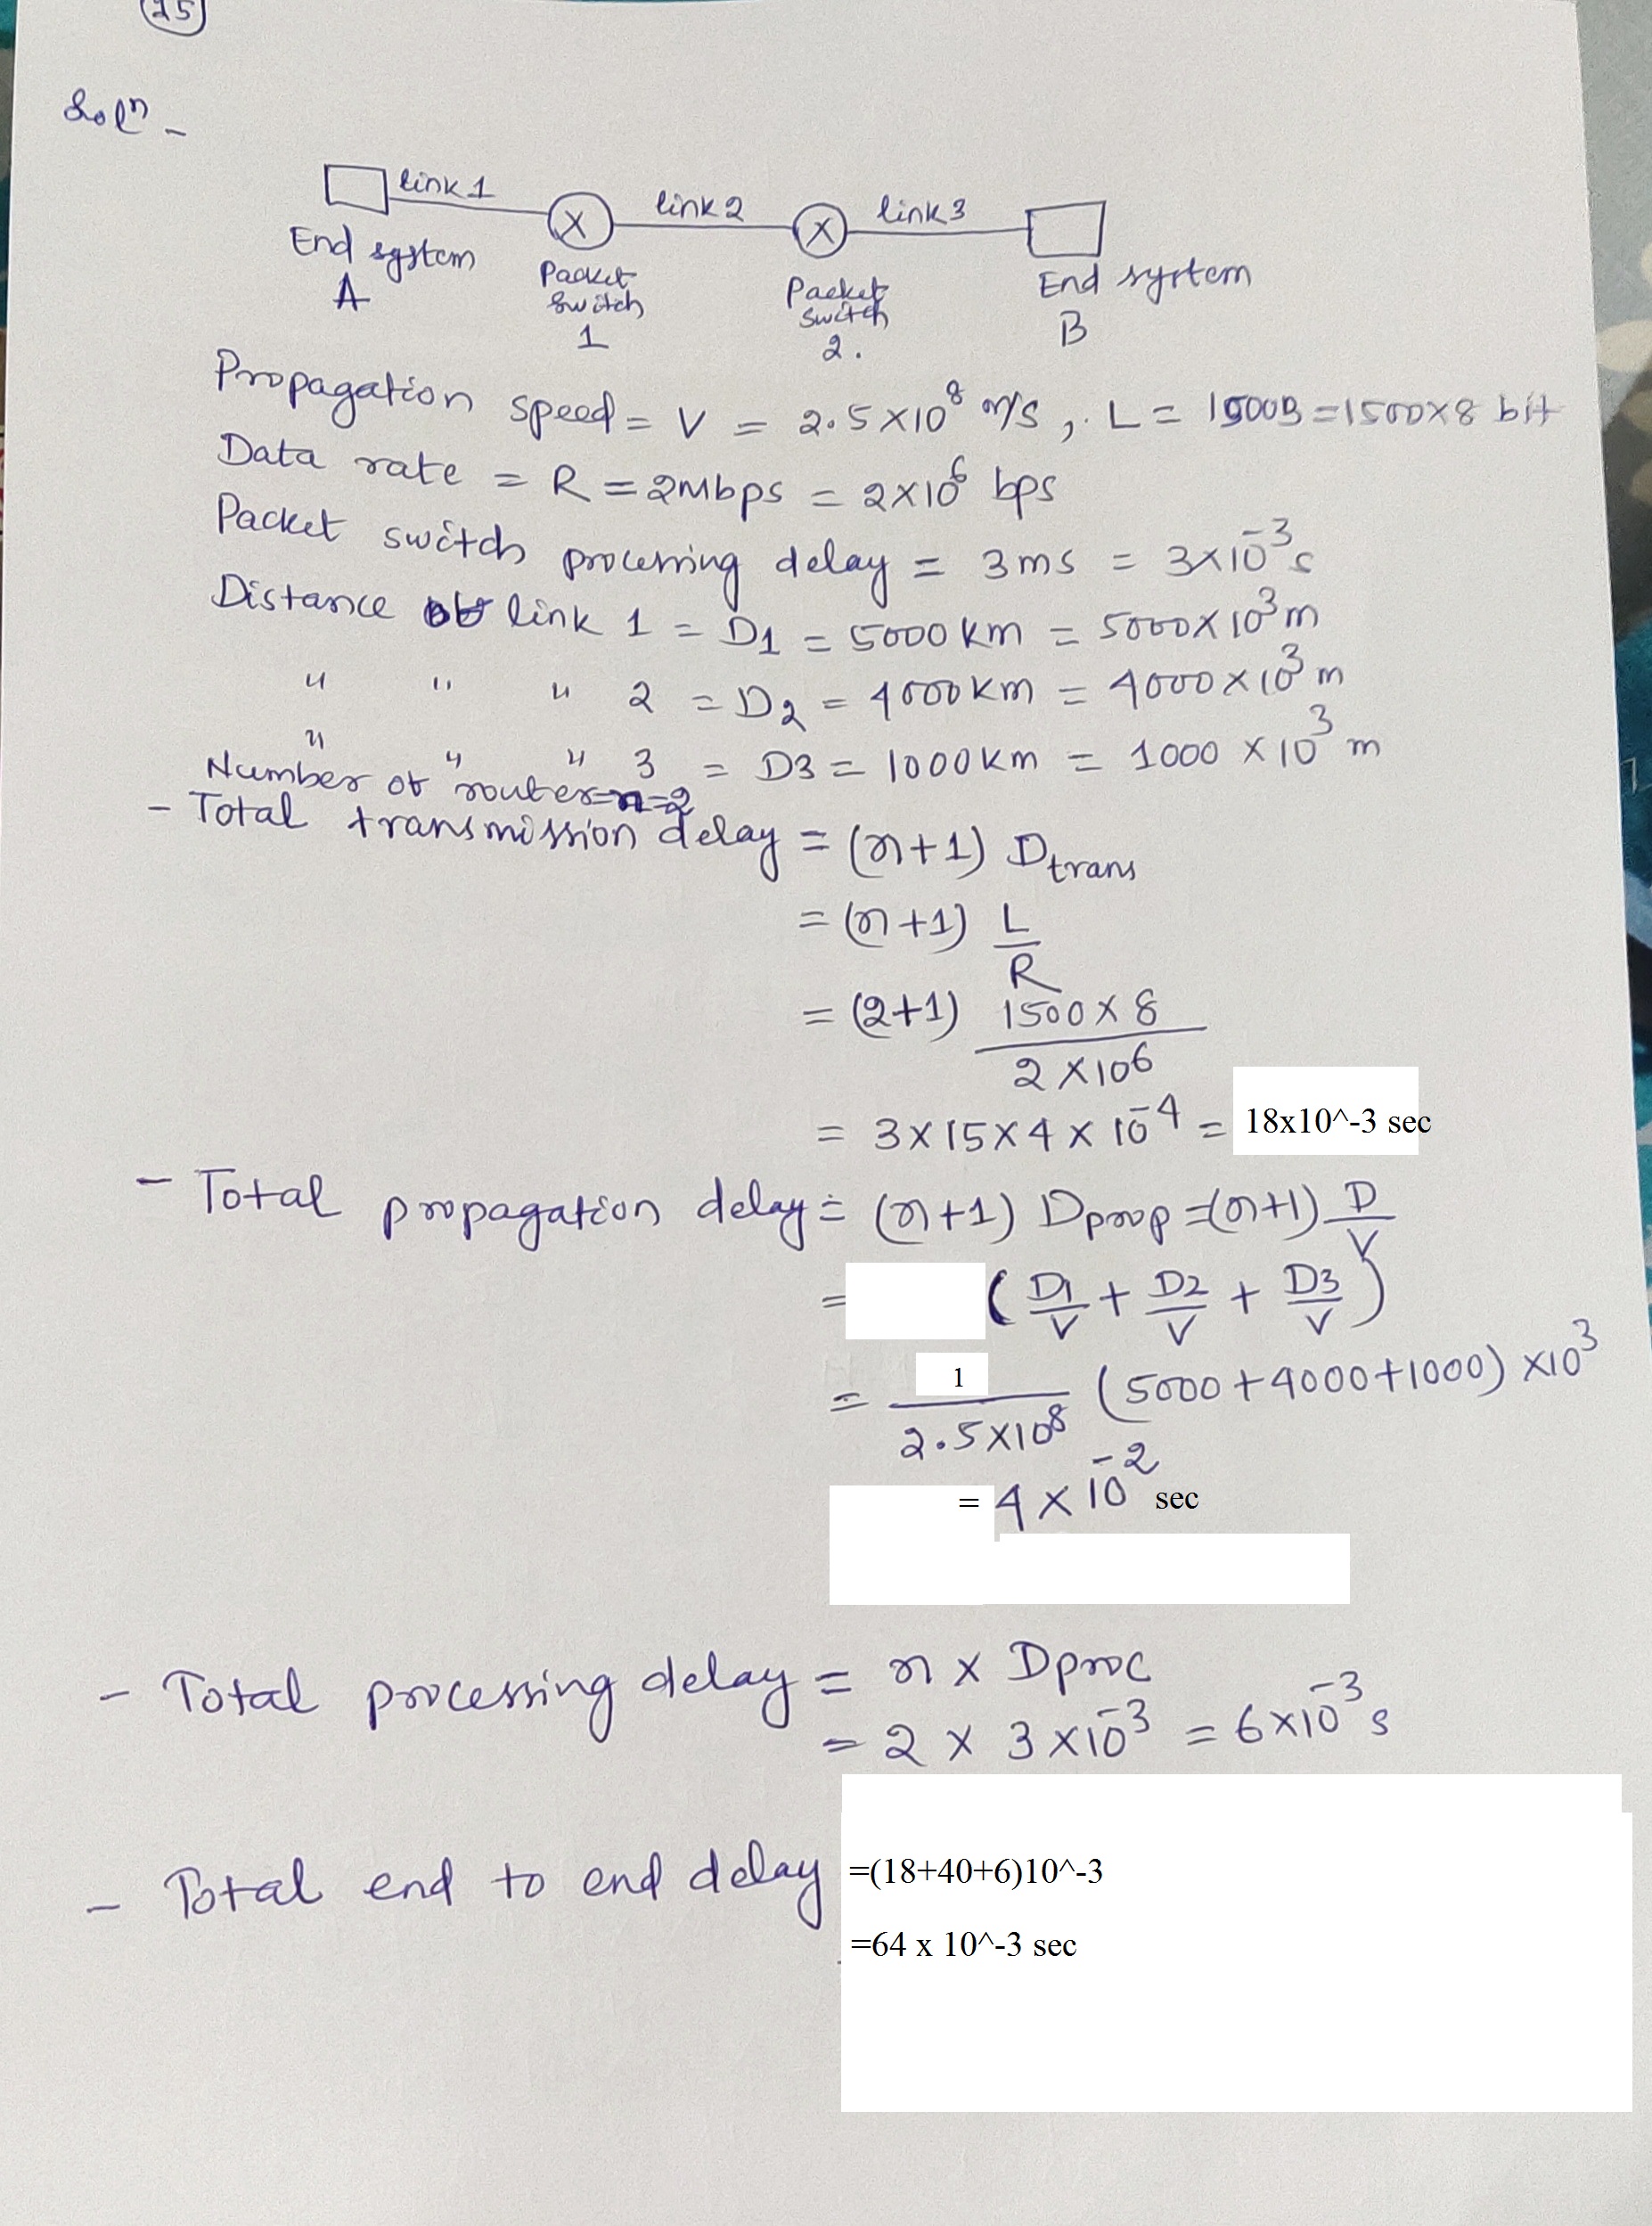 25
Solⁿ -
link 1 link 2 link 3
X X
End system A
Packet switch 1
Packet switch 2.
End system B
Propagation speed = V = 2.5×10⁸ m/s, L = 1500B = 1500×8 bit
Data rate = R = 2Mbps = 2×10⁶ bps
Packet switch processing delay = 3ms = 3×10⁻³s
Distance of link 1 = D1 = 5000 km = 5000×10³m
" " " 2 = D2 = 4000 km = 4000×10³ m
" " " 3 = D3 = 1000 km = 1000 ×10³ m
Number of router=n=2
- Total transmission delay = (n+1) Dtrans
= (n+1) L/R
= (2+1) 1500×8 / 2×10⁶
= 3×15×4×10⁻⁴ = 18x10^-3 sec
- Total propagation delay = (n+1) Dprop = (n+1) D/V
= (D1/V + D2/V + D3/V)
= 1/2.5×10⁸ (5000+4000+1000) ×10³
= 4×10⁻² sec
- Total processing delay = n × Dproc
= 2 × 3×10⁻³ = 6×10⁻³ s
- Total end to end delay =(18+40+6)10^-3
=64 x 10^-3 sec